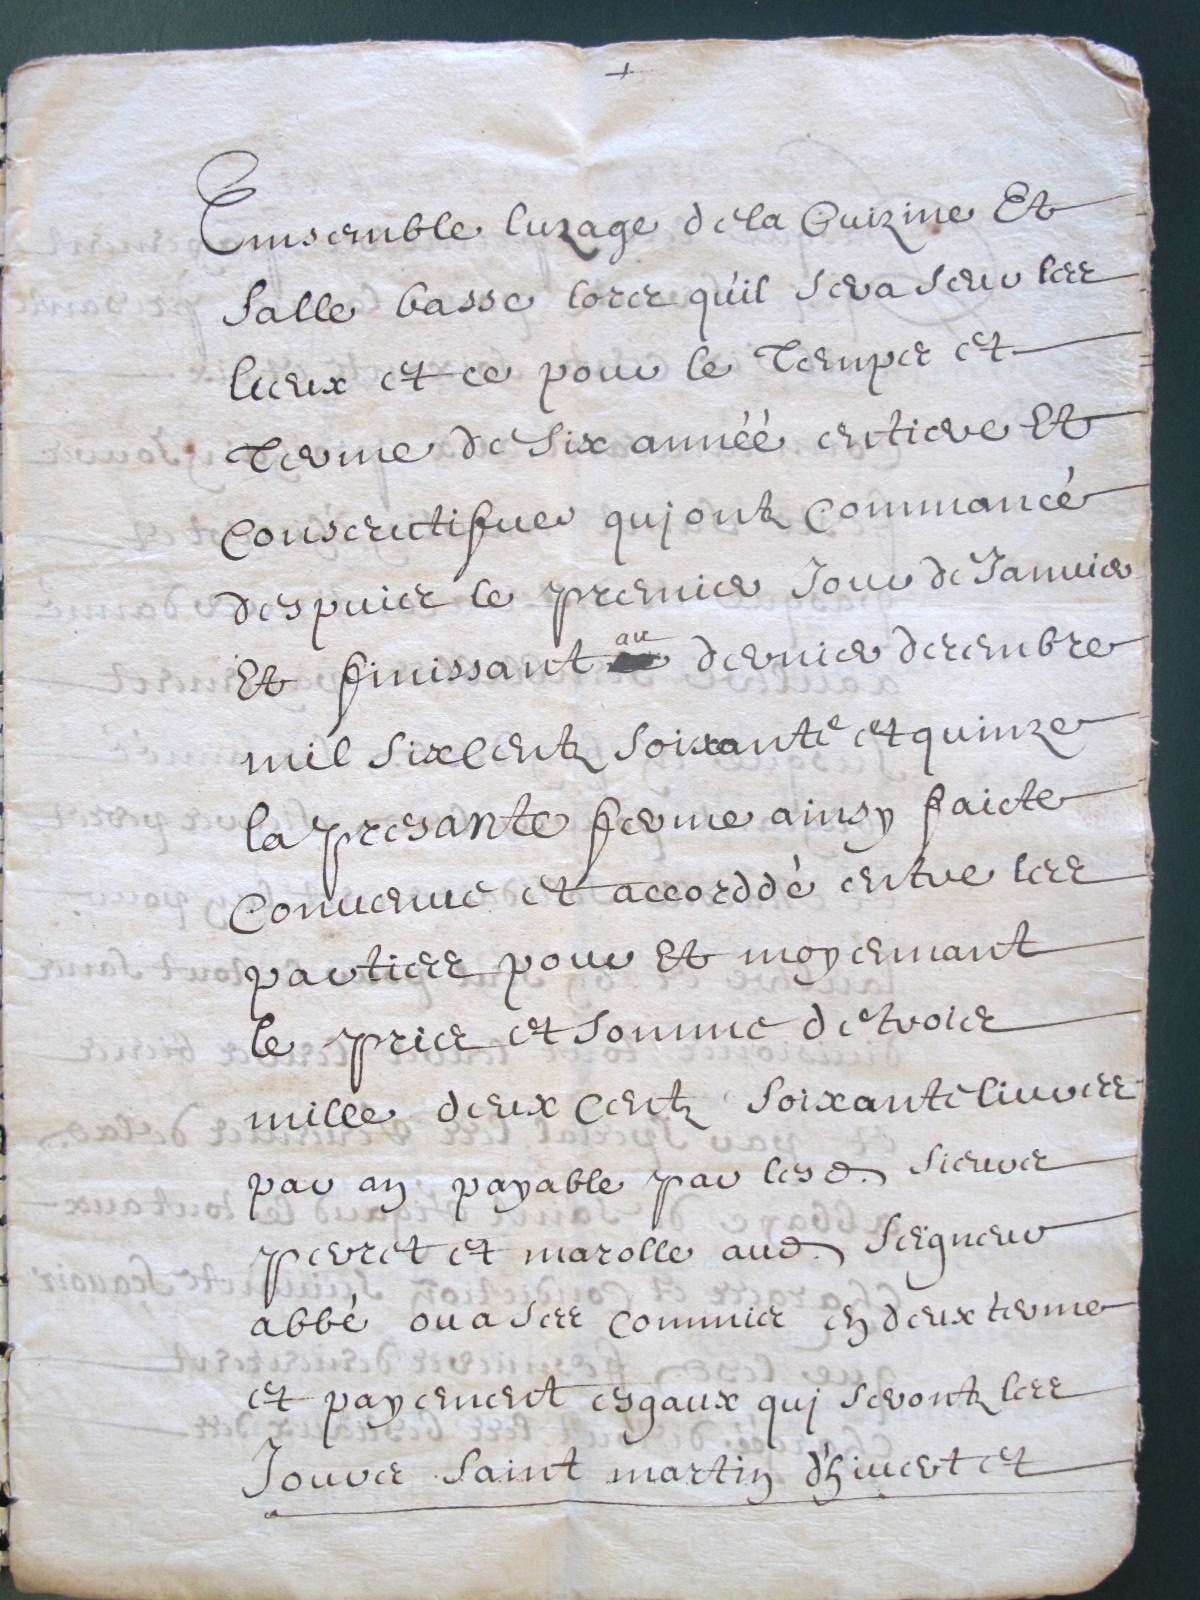 +
Ensemble luzage de la Cuizine Et
Salle basse lors qu'il sera seur les
lieux et ce pour le Temps et
Terme de Six année entiere Et
Consecutifues quj ont Commancé
despuis le premier Jour de Januier
Et finissant au dernier decembre
mil Six Centz soixante et quinze
la presante ferme ainsy faicte
Conuenue et accorddé entre les
parties pour Et moyennant
le pris et somme de trois
mille deux Centz soixante liures
par an payable par lesd. sieurs
perret et marolle aud. seigneur
abbé ou a ses commis en deux terme
et payement esgaux quj seront les
Jours Saint martin d'hiuert et